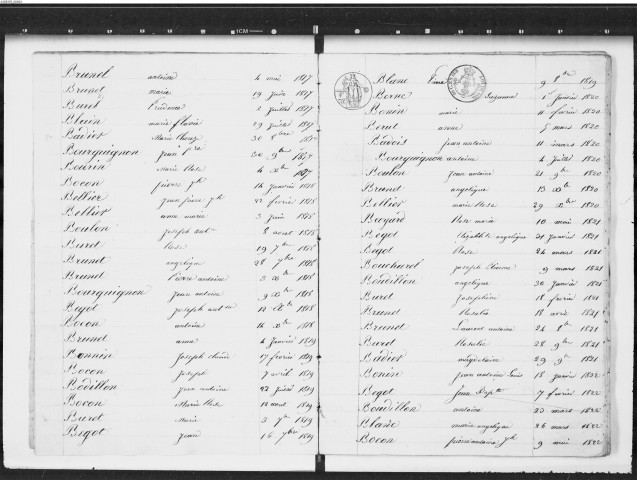 Brunel antoine 4 mai 1817
Brunet marie 19 juin 1817
Burel Prudence 2 juillet 1817
Blain marie flavie 29 juillet 1817
Badier Marie 30 8bre 1817
Bourguignon Jean 30 9bre 1817
Bourin marie Rose 4 Xbre 1817
Bocon pierre jh 14 janvier 1818
Bellier jean pierre jh 22 fevrier 1818
Bellier anne marie 3 juin 1818
Boulon joseph ant 8 aout 1818
Buret Rose 19 7bre 1818
Brunet angelique 28 7bre 1818
Brunet Pierre antoine 3 Xbre 1818
Bourguignon Jean antoine 9 Xbre 1818
Begot joseph 12 Xbre 1818
Bocon antoine 14 Xbre 1818
Brunet anne 4 janvier 1819
Bonnin Joseph 17 fevrier 1819
Bocon Joseph 7 avril 1819
Bodillon jean antoine 22 1819
Bocon Marie Rose 12 aout 1819
Buret Marie 3 7bre 1819
Begot Jean 16 7bre 1819
Blanc 9 8bre 1819
Borne Suzanne 1 janvier 1820
Bonin marie 11 fevrier 1820
Borut anne 5 mars 1820
Bavois jean antoine 11 mars 1820
Bourguignon antoine 4 juillet 1820
Boulon Jean antoine 21 9bre 1820
Brunet angelique 13 Xbre 1820
Bellier marie Rose 29 Xbre 1820
Bayard Rose marie 10 mai 1821
Begot Elizabeth angelique 21 janvier 1821
Begot Rose 24 mars 1821
Bouchard joseph Etienne 9 mars 1821
Boudillon angelique 30 janvier 1821
Buret Josephine 18 fevrier 1821
Brunet Rosalie 18 avril 1821
Brunet Laurent antoine 24 8bre 1821
Buret Rosalie 28 9bre 1821
Badier magdelaine 29 9bre 1821
Bonin jean antoine Louis 18 janvier 1822
Begot Jean Bapte 7 fevrier 1822
Boudillon antoine 23 mars 1822
Blanc marie angelique 26 mars 1822
Bocon pierre antoine jh 9 mai 1822